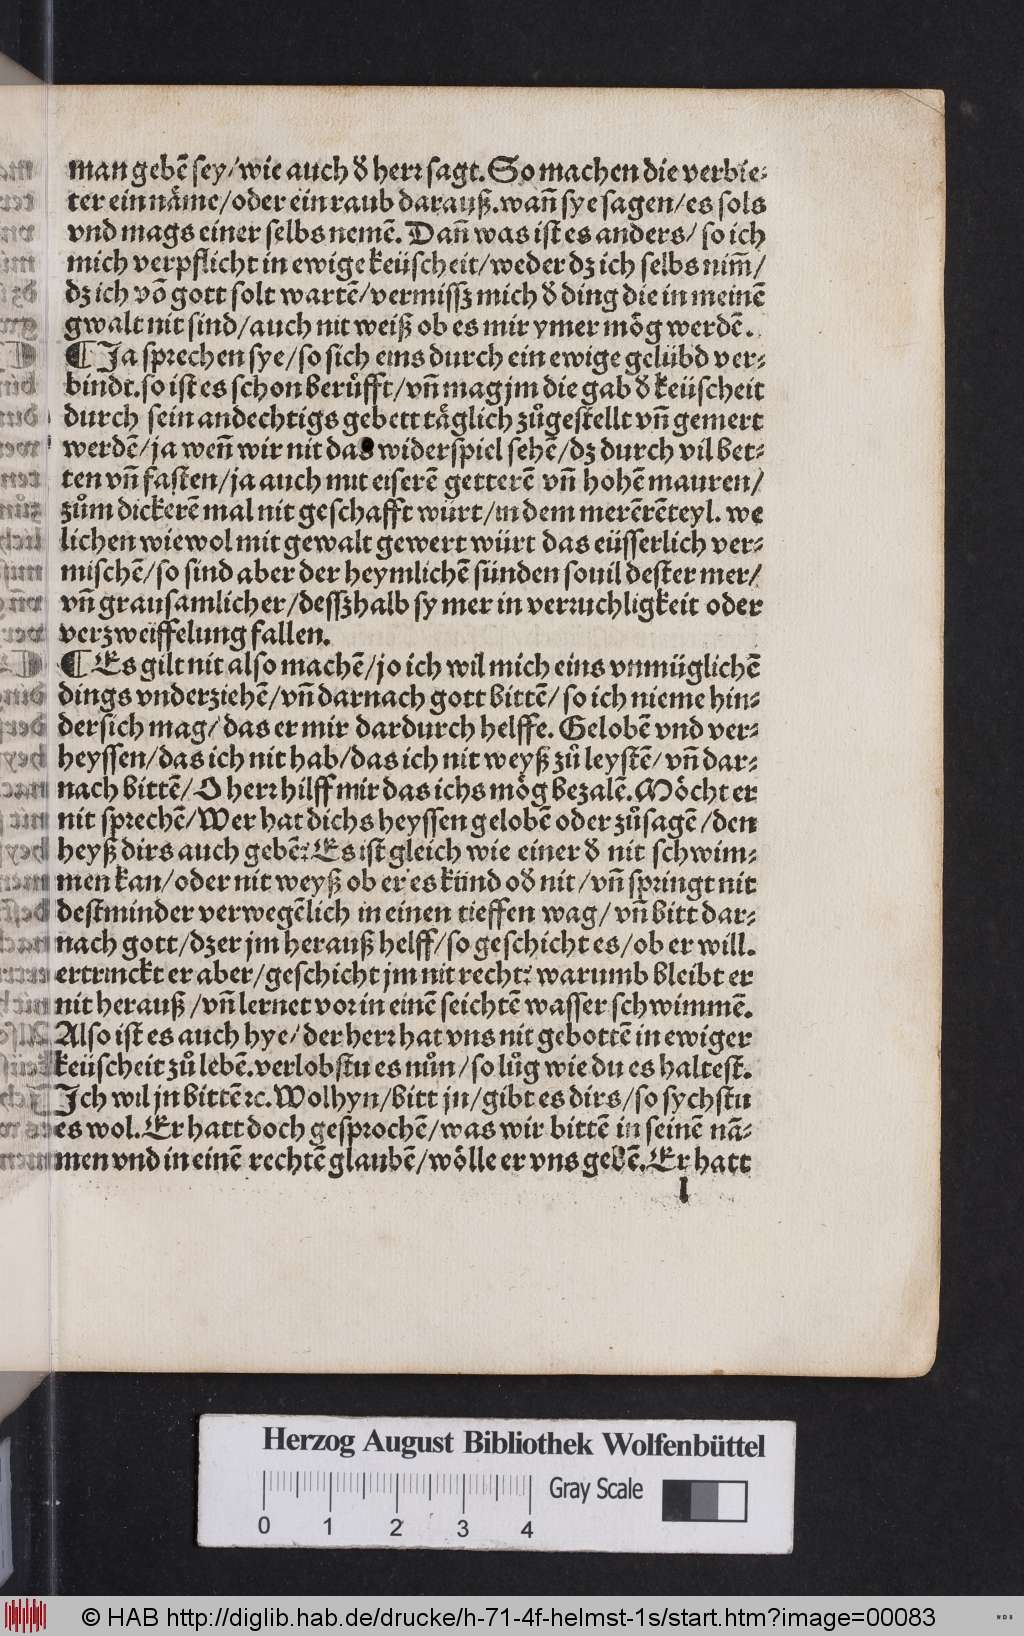 man gebē sey/wie auch ð herꝛ sagt. So machen die verbie⸗
ter ein nåme/oder ein raub darauß.wañ sye sagen/es sols
vnd mags einer selbs nemē. Dañ was ist es anders/ so ich
mich verpflicht in ewige keüscheit/weder dz ich selbs nim̄/
dz ich vō gott solt wartē/vermissz mich ð ding die in meinē
gwalt nit sind/auch nit weiß ob es mir ymer mög werdē.
¶ Ja sprechen sye/so sich eins durch ein ewige gelübd ver⸗
bindt.so ist es schon berůfft/vñ mag jm die gab ð keüscheit
durch sein andechtigs gebett täglich zůgestellt vñ gemert
werdē/ja weñ wir nit das widerspiel sehē/dz durch vil bet⸗
ten vñ fasten/ja auch mit eiserē getterē vñ hohē mauren/
zům dickerē mal nit geschafft würt/in dem merērē teyl. we
lichen wiewol mit gewalt gewert würt das eüsserlich ver⸗
mischē/so sind aber der heymlichē sünden souil dester mer/
vñ grausamlicher/dessзhalb sy mer in verꝛuchligkeit oder
verzweiffelung fallen.
¶ Es gilt nit also machē/jo ich wil mich eins vnmüglichē
dings vnderziehē/vñ darnach gott bittē/so ich nieme hin⸗
dersich mag/das er mir dardurch helffe. Gelobē vnd ver⸗
heyssen/das ich nit hab/das ich nit weyß zů leystē/vñ dar⸗
nach bittē/O herꝛ hilff mir das ichs mög bezalē. Möcht er
nit sprechē/Wer hat dichs heyssen gelobē oder zůsagē/den
heyß dirs auch gebē? Es ist gleich wie einer ð nit schwim⸗
men kan/oder nit weyß ob er es künd oð nit/vñ springt nit
destminder verwegēlich in einen tieffen wag/vñ bitt dar⸗
nach gott/dzer jm herauß helff/so geschicht es/ob er will.
ertrinckt er aber/geschicht jm nit recht? warumb bleibt er
nit herauß/vñ lernet voꝛ in einē seichtē wasser schwimmē.
Also ist es auch hye/der herꝛ hat vns nit gebottē in ewiger
keüscheit zů lebē.verlobstu es nůn/so lůg wie du es haltest.
Ich wil jn bittē ꝛc. Wolhyn/bitt jn/gibt es dirs/so sychstu
es wol. Er hatt doch gesprochē/was wir bittē in seinē nā⸗
men vnd in einē rechtē glaubē/wölle er vns gebē. Er hatt
l
Herzog August Bibliothek Wolfenbüttel
Gray Scale
0 1 2 3 4
© HAB http://diglib.hab.de/drucke/h-71-4f-helmst-1s/start.htm?image=00083